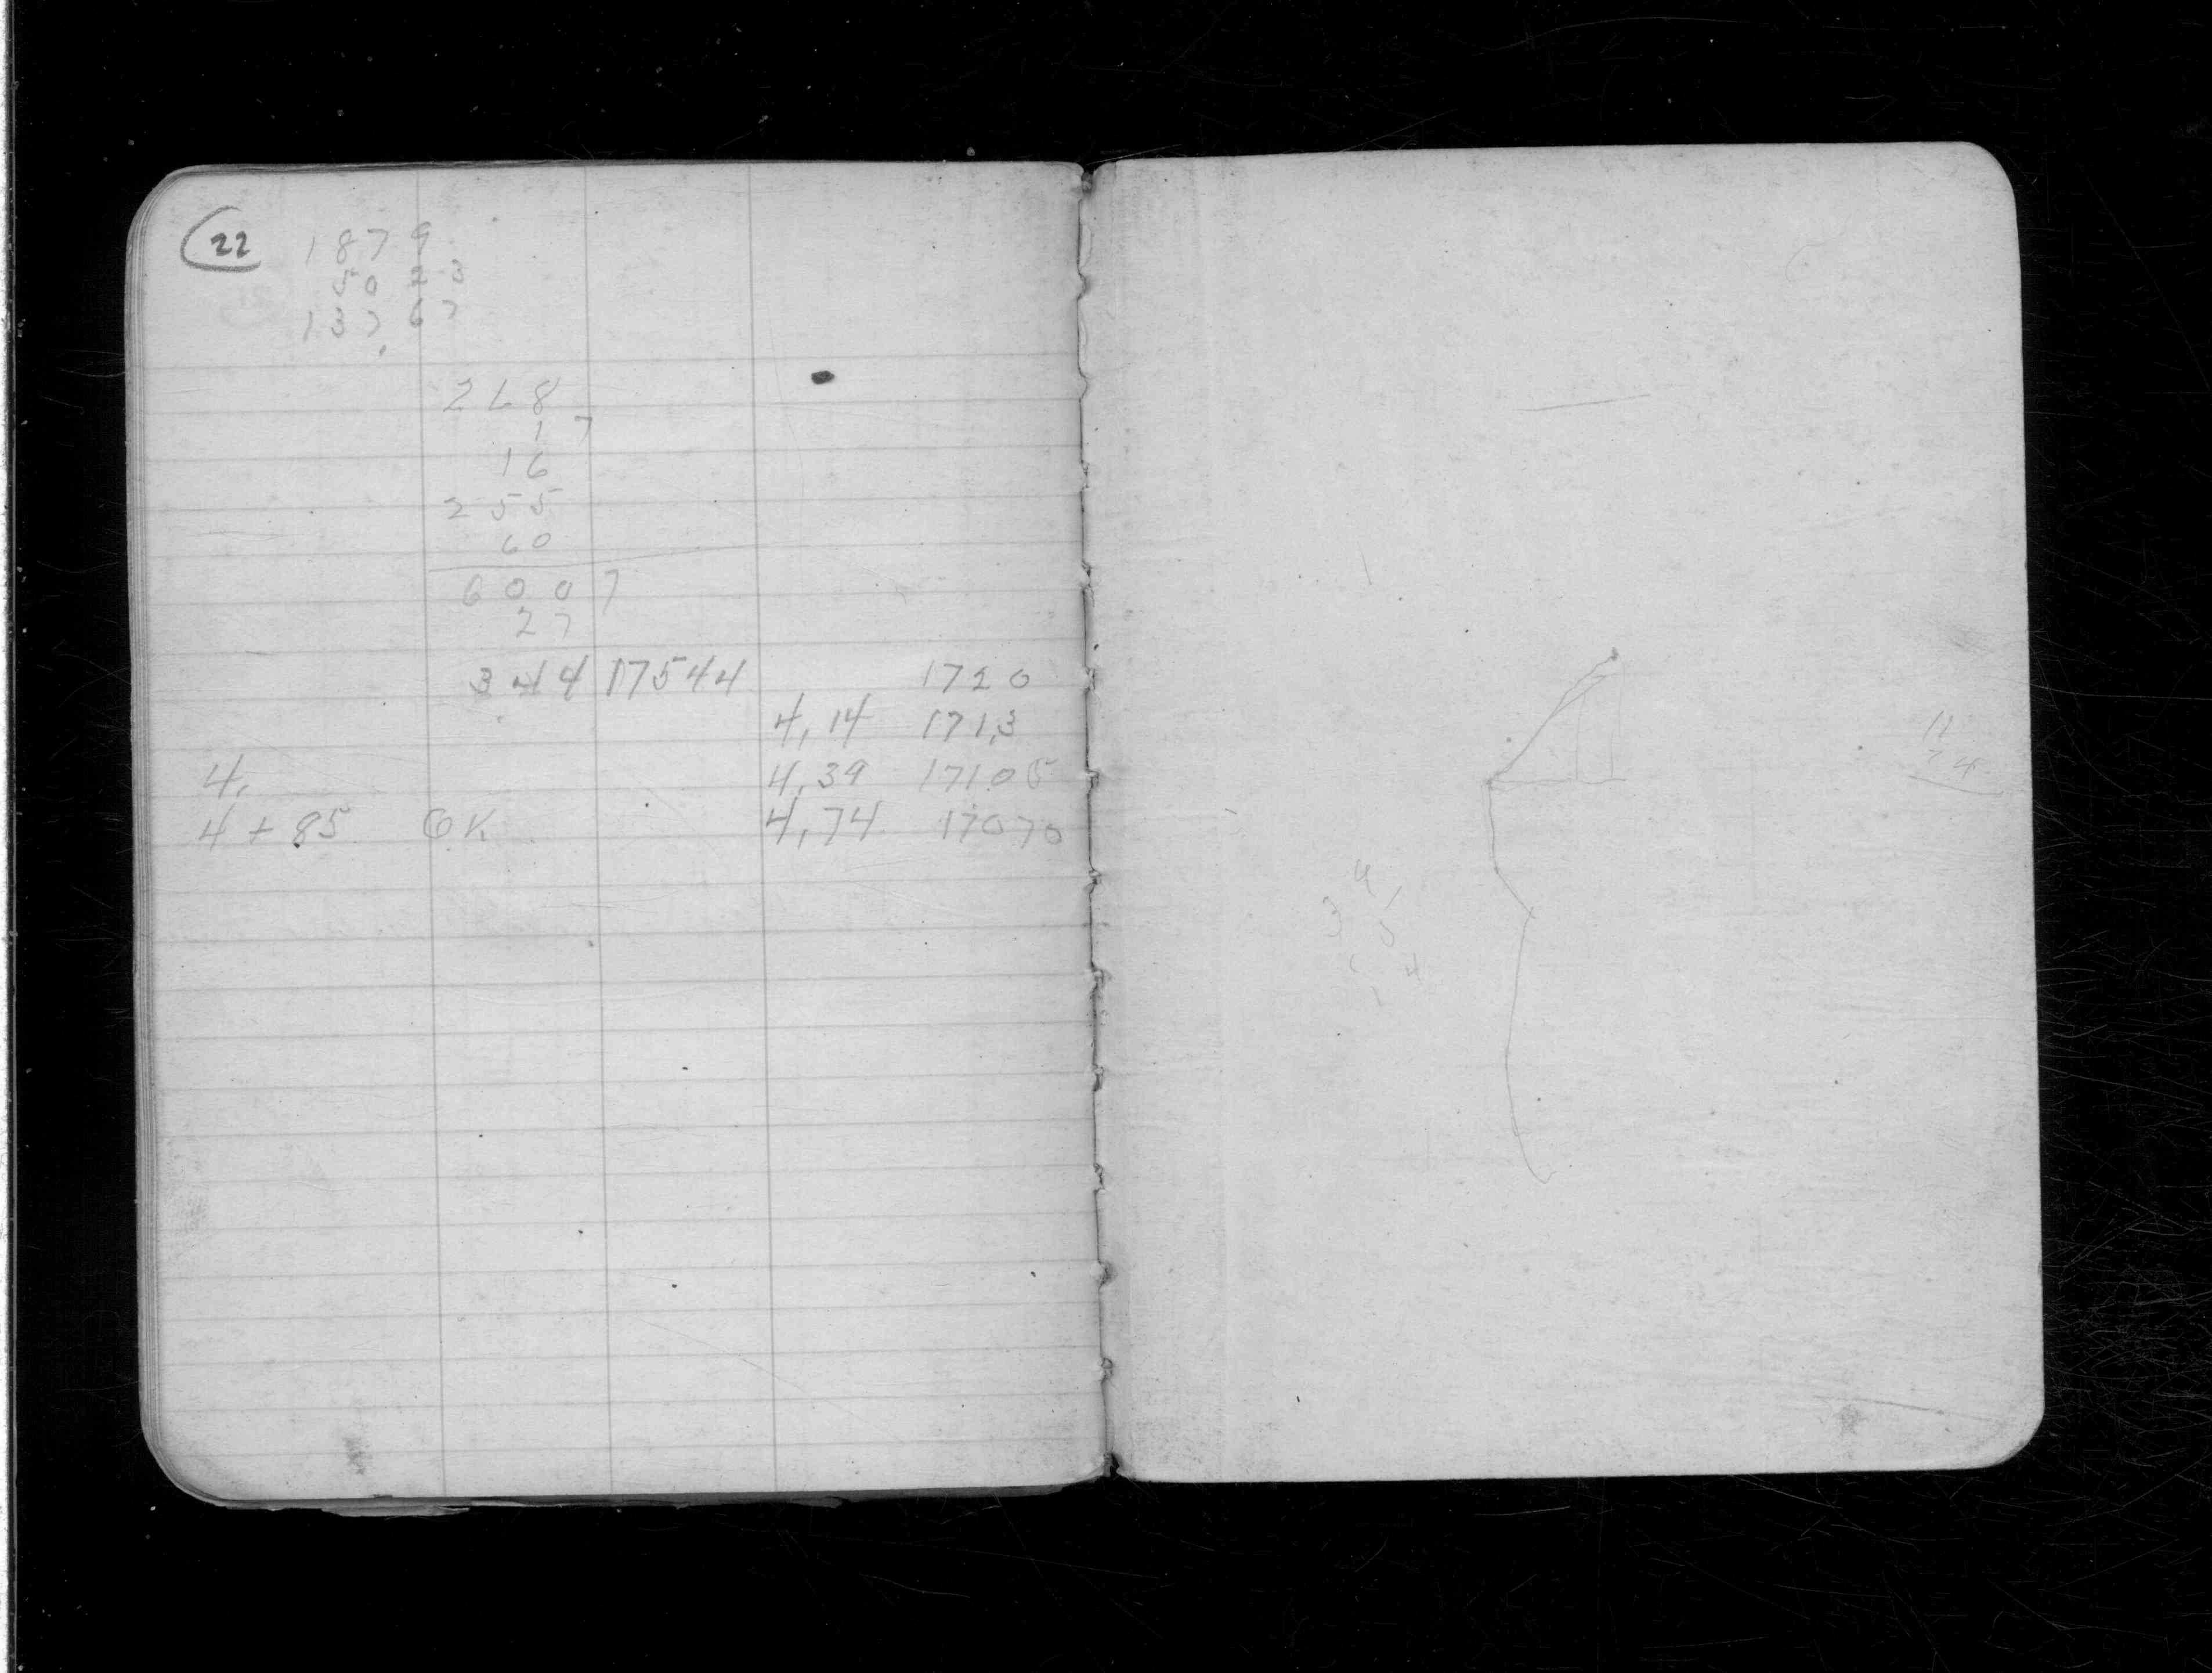 22 1879
50 23
137 67
268
17
16
255
60
6007
27
344 17544 1720
4,14 171,3
4, 4,39 17105
4 + 85 OK 4,74 17070
11
4
3 5
4